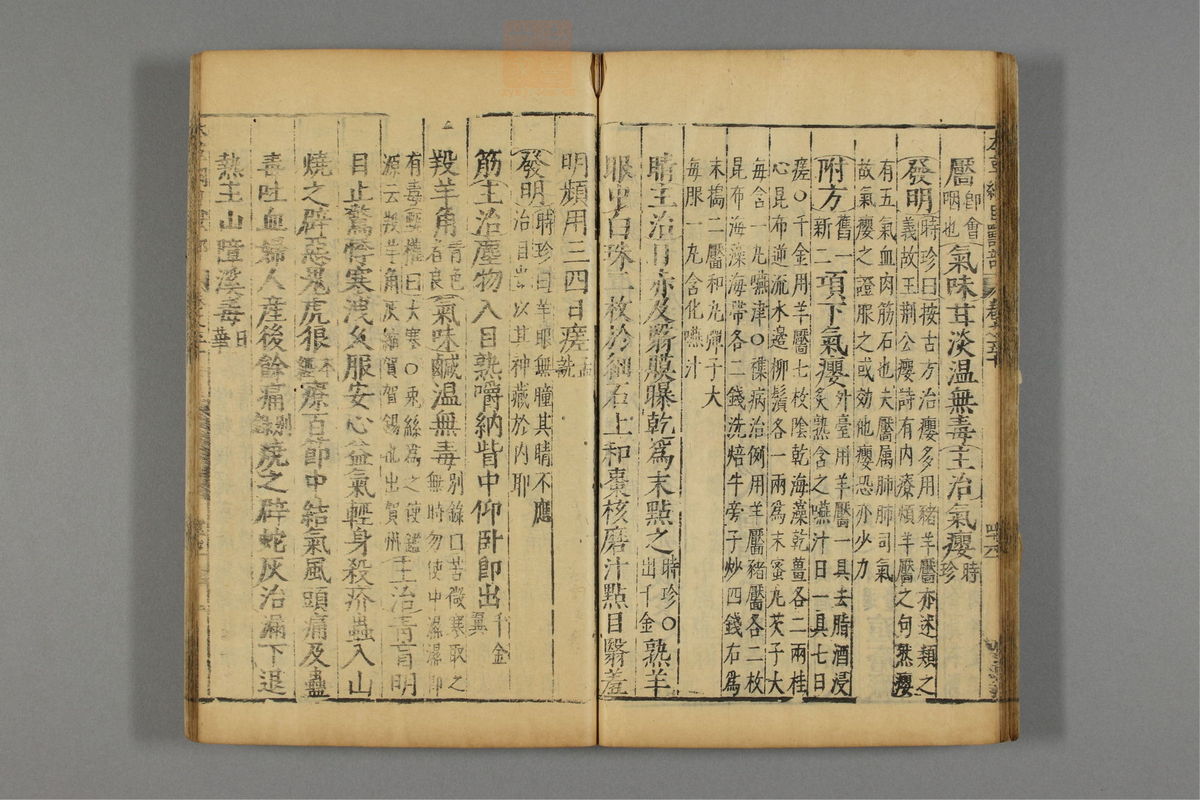 靨即會咽也氣味甘淡温無毒主治氣癭時珍
發明時珍曰按古方治癭多用豬羊靨亦述類之
義故王荆公癭詩有内療煩羊靨之句然癭
有五氣血肉筋石也夫靨屬肺肺司氣
故氣癭之證服之或効他癭恐亦少力
附方舊一新二項下氣癭外臺用羊靨一具去脂酒浸
炙熟含之嚥汁日一具七日
瘥○千金用羊靨七枚陰乾海藻乾薑各二兩桂
心昆布逆流水邊柳鬚各一兩為末蜜丸芡子大
每含一丸嚥津○雜病治例用羊靨豬靨各二枚
昆布海藻海帶各二錢洗焙牛旁子炒四錢右為
末搗二靨和丸彈子大
每服一丸含化嚥汁
睛主治目赤及翳膜曝乾為末點之時珍○出千金熟羊
眼中白珠二枚於細石上和棗核磨汁點目翳羞
明頻用三四日瘥
發明時珍曰羊眼無瞳其睛不應
治目出以其神藏於内耶
筋主治塵物入目熟嚼納眥中仰卧即出千金翼
羖羊角青色者良氣味鹹温無毒别錄曰苦微寒取之
無時勿使中濕濕即
有毒甄權曰大寒○兎絲為之使
源云羖羊角灰縮賀賀錫也出賀州主治青盲明
目止驚悸寒洩久服安心益氣輕身殺疥蟲入山
燒之辟惡鬼虎狼本經療百節中結氣風頭痛及蠱
毒吐血婦人産後餘痛别錄燒之辟蛇灰治漏下退
熱主山瘴溪毒日華